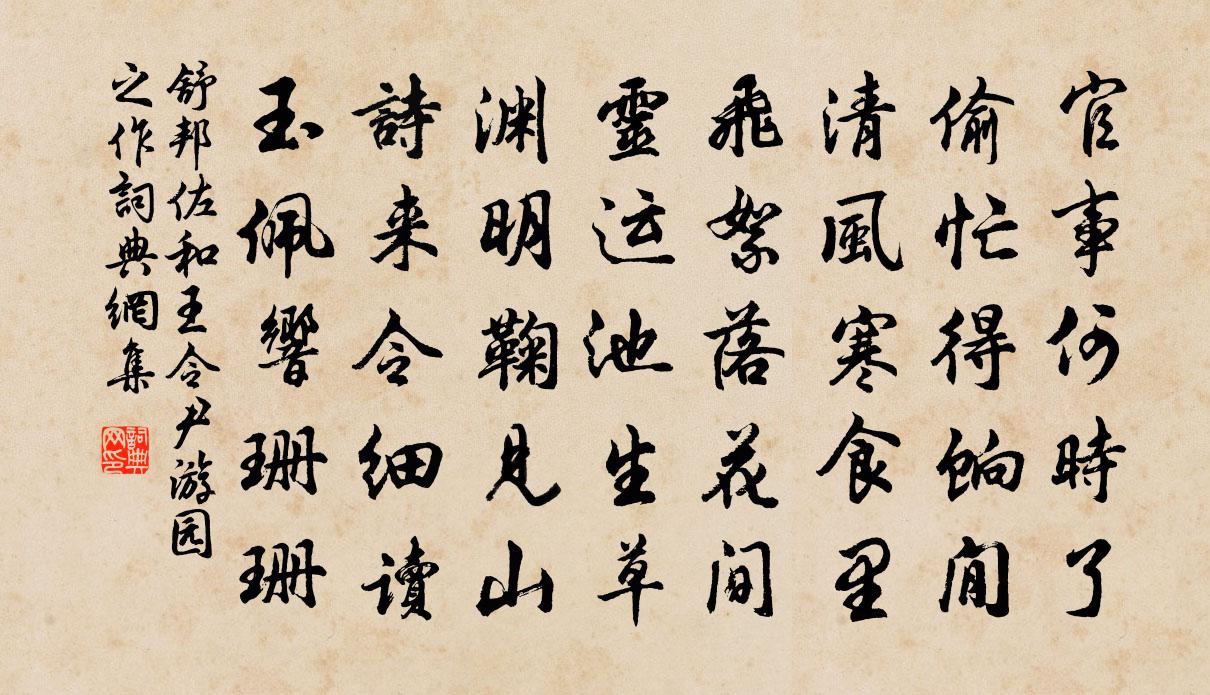 官事何時了
偷忙得餉閒
清風寒食里
飛絮落花間
靈运池生草
渊明鞠見山
詩来令細讀
玉佩響珊珊
舒邦佐和王令尹游园
之作詞典網集
詞典
网印